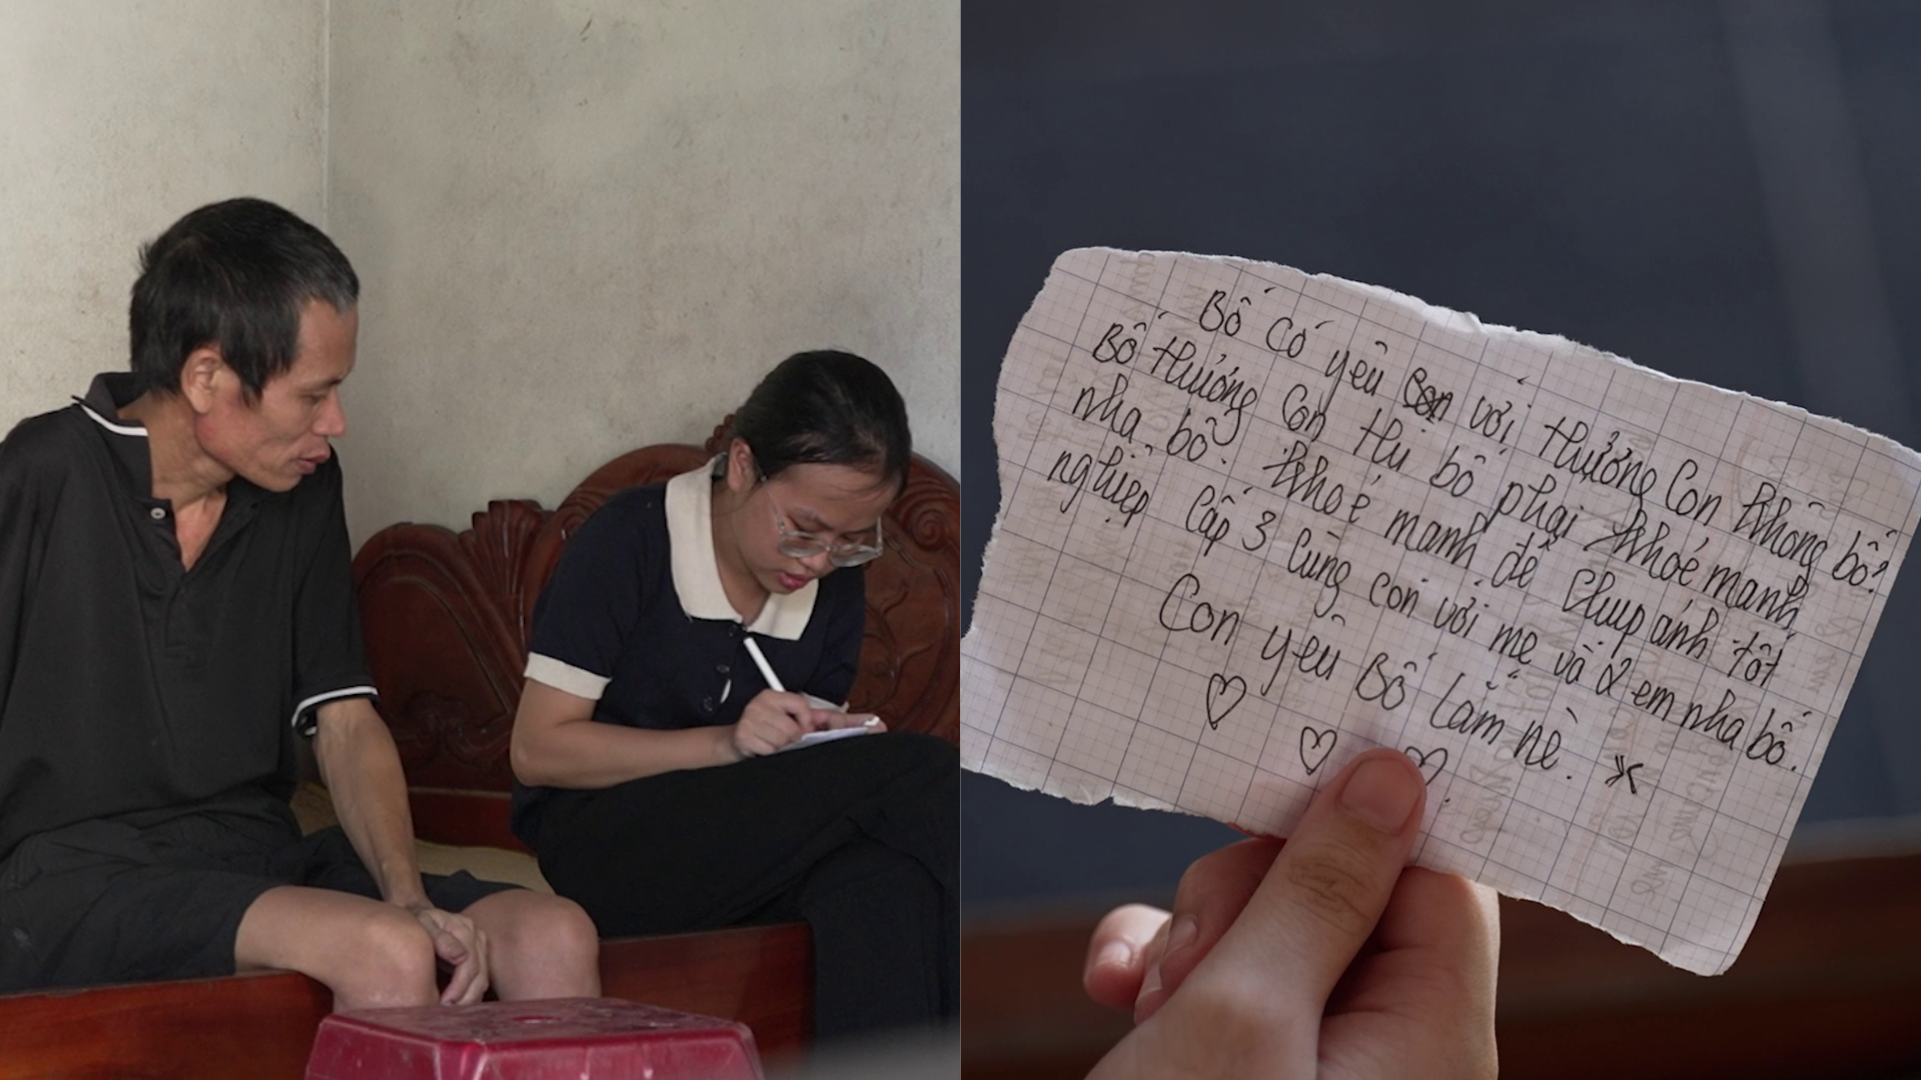 Bố có yêu con với thương con không bố?
Bố thương con thì bố phải khoẻ mạnh
nha bố. khoẻ mạnh để chụp ảnh tốt
nghiệp cấp 3 cùng con với mẹ và 2 em nha bố.
Con yêu Bố lắm nè.